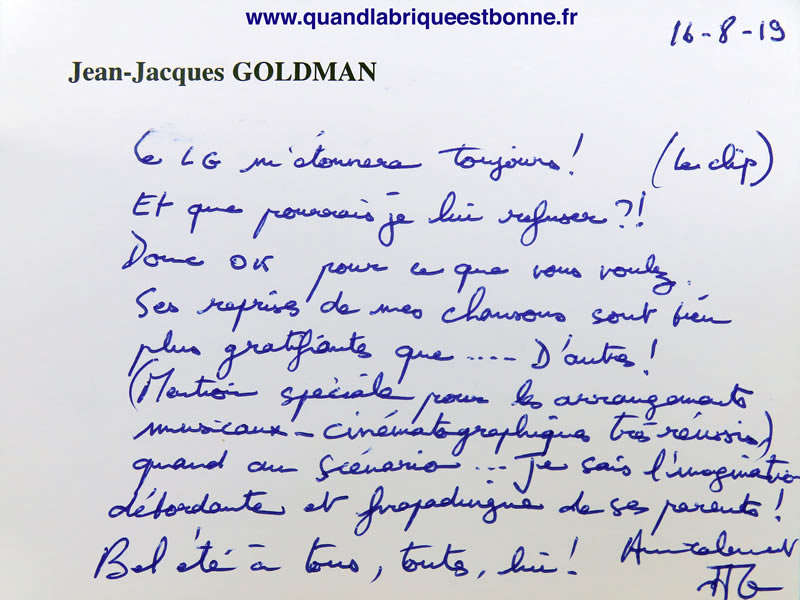 www.quandlabriqueestbonne.fr
16-8-19
Jean-Jacques GOLDMAN
Ce LG m'étonnera toujours! (Le clip)
Et que pourrais-je lui refuser?!
Donc OK pour ce que vous voulez.
Ses reprises de mes chansons sont bien
plus gratifiantes que .... D'autres!
(Mention spéciale pour les arrangements
musicaux - cinématographiques très réussis)
quand au scénario ... Je sais l'imagination
débordante et frapadingue de ses parents!
Bel été à tous, toutes, lui! Amicalement